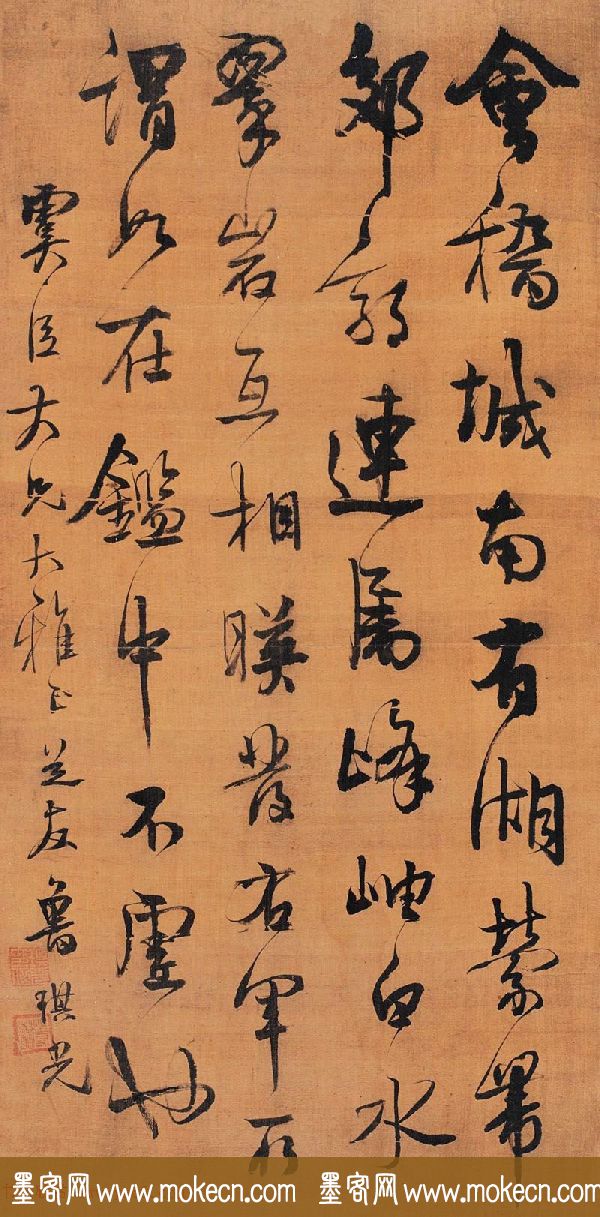 會稽城南有湖縈帶
郊郭連属峰岫白水
翠岩互相暎發右軍所
謂如在鑑中不虛也
虞臣大兄大雅正 芝友魯琪光
墨客网 www.mokecn.com 墨客网 www.mokecn.com